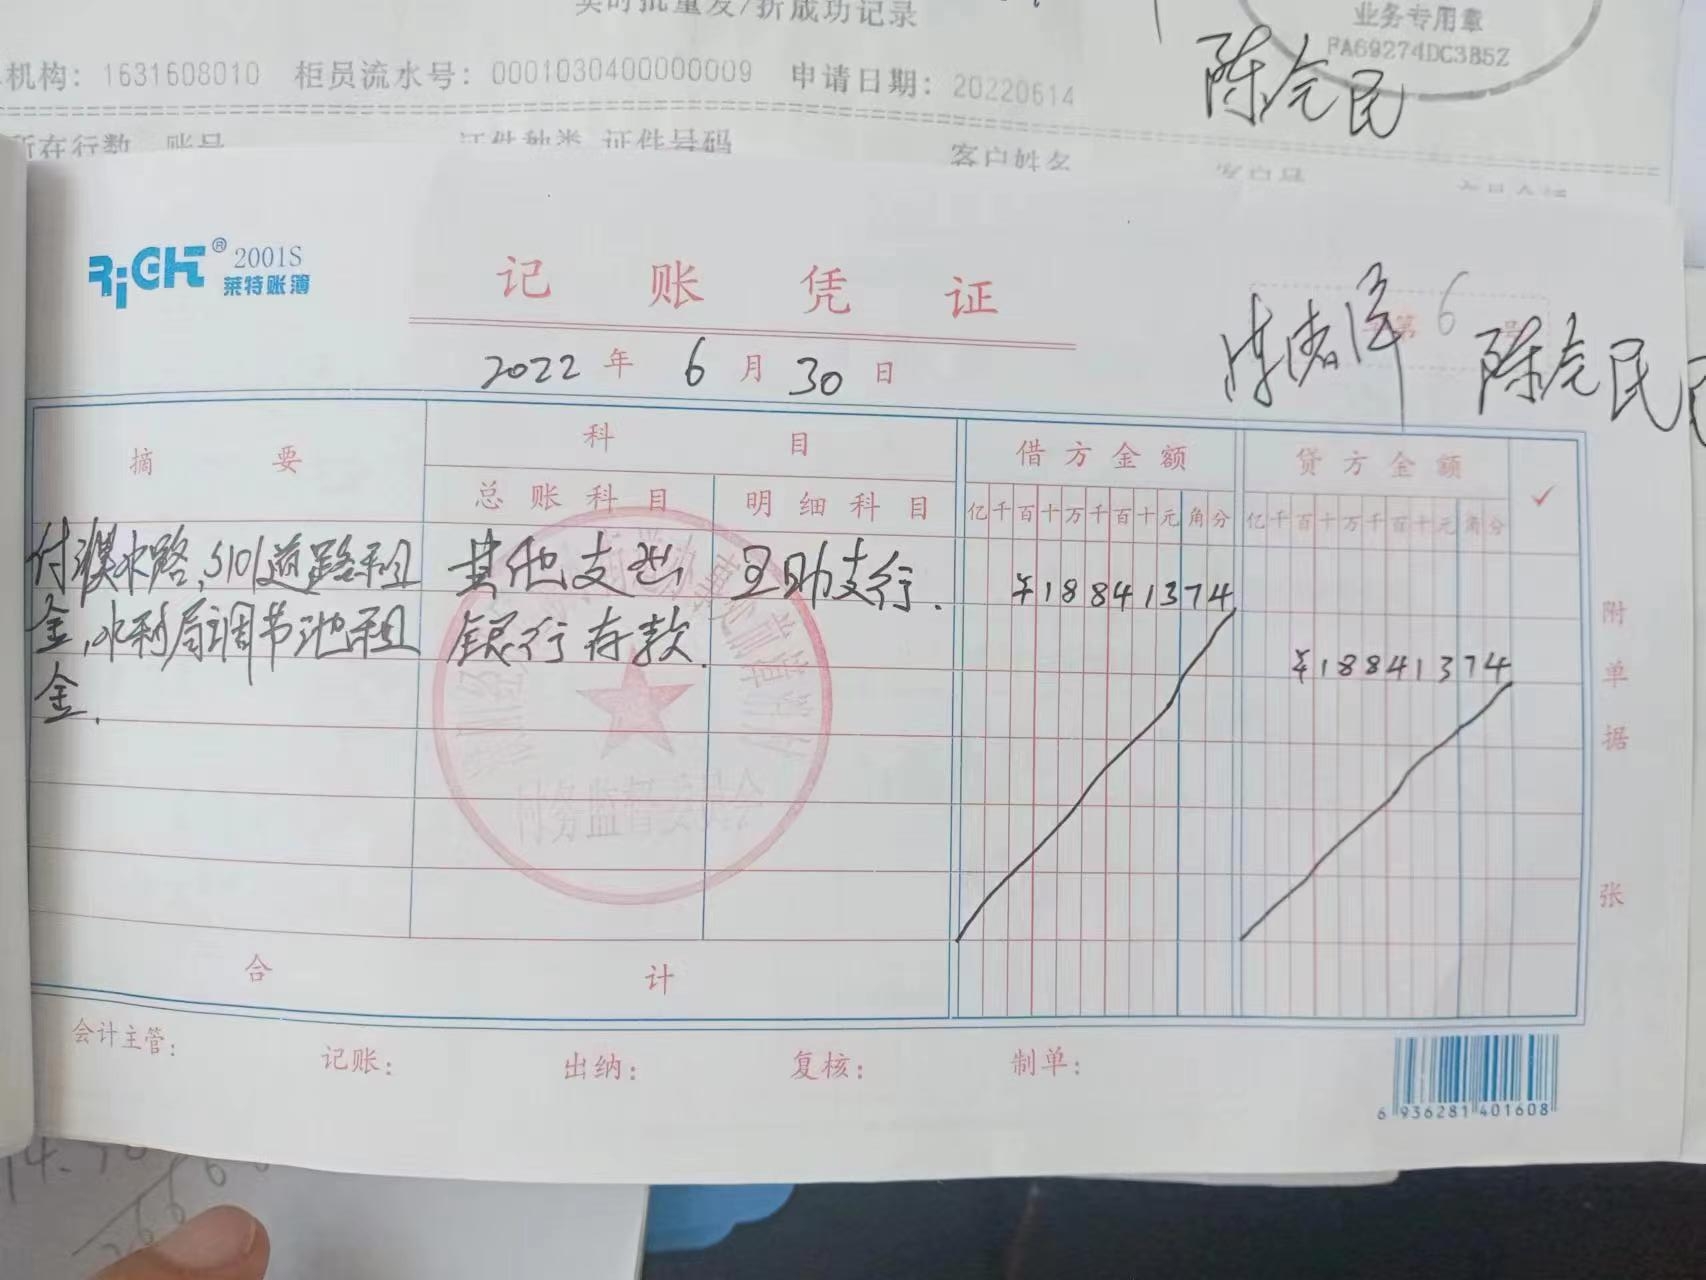 实时批量发/折成功记录
业务专用章
FA69274DC3B5Z
机构：1631608010 柜员流水号：0001030400000009 申请日期：20220614
陈允民
所在行数 账号 证件种类 证件号码 客户姓名
RiGHT® 2001S
莱特账簿
记账凭证
第 6 号
陈允民
2022年 6月 30日
摘要 科目 借方金额 贷方金额 ✓
总账科目 明细科目 亿千百十万千百十元角分 亿千百十万千百十元角分
付濮水路,S101道路租 其他支出 互助支行. ¥18841374
金,水利局调节池租 银行存款. ¥18841374
金.
村务监督委员会
附单据 张
合计
会计主管： 记账： 出纳： 复核： 制单：
6 936281 401608